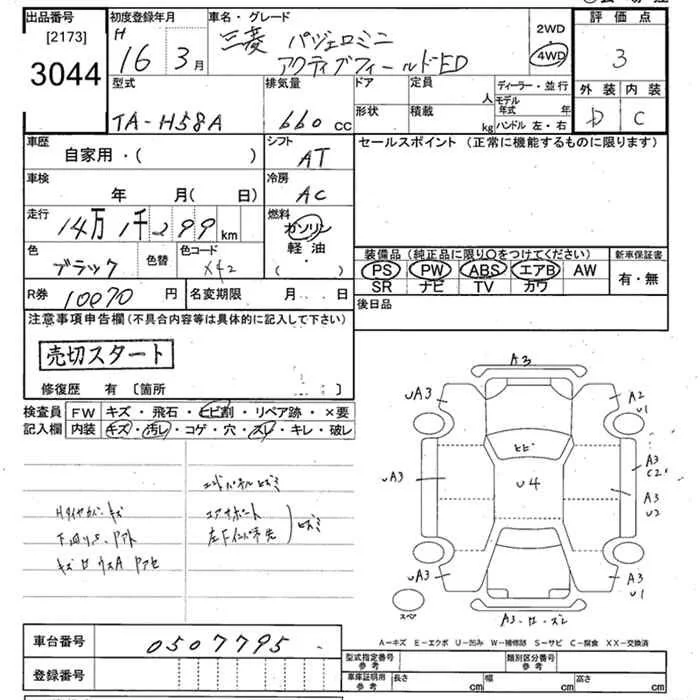 出品番号
[2173]
3044
初度登録年月
H 16 3月
車名・グレード
三菱 パジェロミニ
アクティブフィールドED
2WD
4WD
評価点
3
外装 内装
D C
型式
TA-H58A
排気量
660 cc
ドア
形状
定員
人
積載
kg
ディーラー・並行
モデル年式 年
ハンドル 左・右
車歴
自家用・( )
シフト
AT
車検
年 月( 日)
冷房
AC
走行
14万1千299 km
燃料
ガソリン
軽・油
( ・ )
色
ブラック
色替
色コード
X42
R券
10070 円
名変期限 月 日
セールスポイント (正常に機能するものに限ります)
装備品(純正品に限り○をつけてください)
新車保証書
PS PW ABS エアB AW
SR ナビ TV カワ
有・無
後日品
注意事項申告欄(不具合内容等は具体的に記入して下さい)
売切スタート
修復歴 有 〔箇所 〕
検査員記入欄
FW キズ・飛石・ヒビ割・リペア跡・×要
内装 キズ・汚レ・コゲ・穴・スレ・キレ・破レ
エンドパネルヒズミ
コアサポート
ヒズミ
A3
uA3
A2
u1
ヒビ
u4
uA3
A3
C2
A3
u2
uA3
A3
u1
スペア
A-キズ E-エクボ U-凹み W-補修跡 S-サビ C-腐食 XX-交換済
車台番号
0507795
登録番号
型式指定番号
参考
類別区分番号
参考
車庫証明用
参考
長さ cm
幅 cm
高さ cm